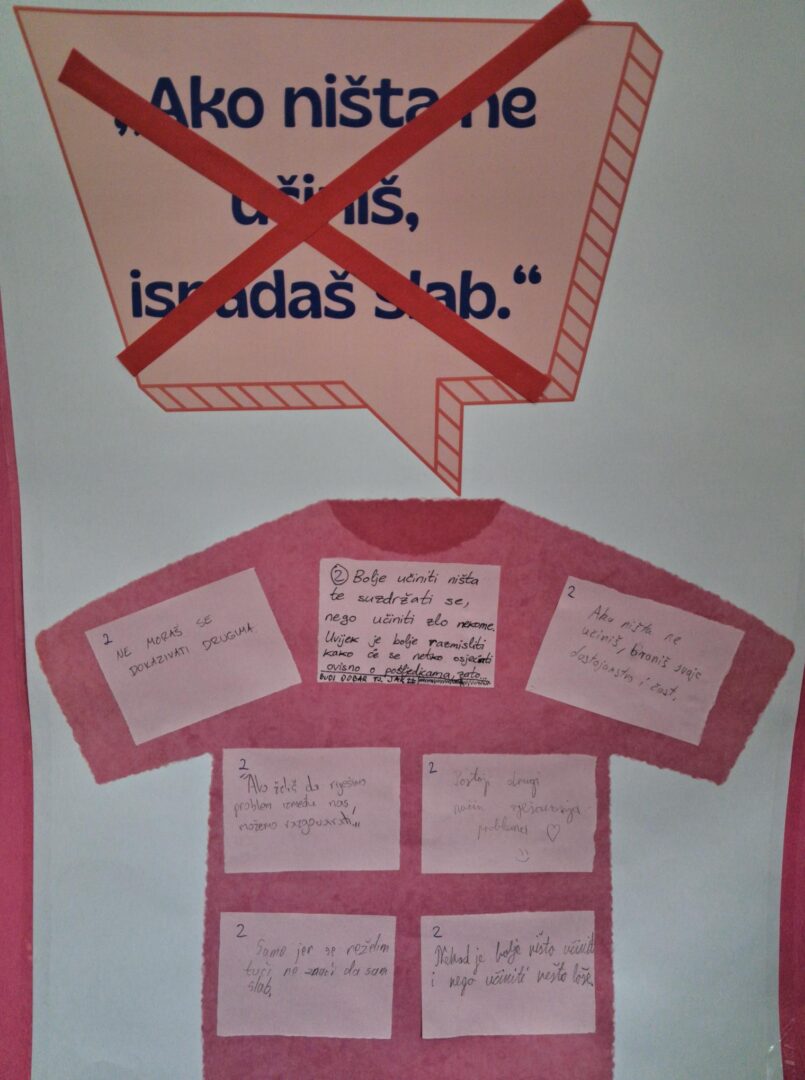 „Ako ništa ne
učiniš,
ispadaš slab.“
2
NE MORAŠ SE
DOKAZIVATI DRUGIMA
2 Bolje učiniti ništa
te suzdržati se,
nego učiniti zlo nekome.
Uvijek je bolje razmisliti
kako će se netko osjećati
ovisno o posljedicama, zato...
BUDI DOBAR
2
Ako ništa ne
učiniš, braniš svoje
dostojanstvo i čast.
2
"Ako želiš da riješimo
problem između nas,
možemo razgovarati"
2
Postoji drugi
način rješavanja
problema ♡
2
Samo jer se neželim
tući ne znači da sam
slab.
2
Nekad je bolje ništa učiniti
i nego učiniti nešto loše.